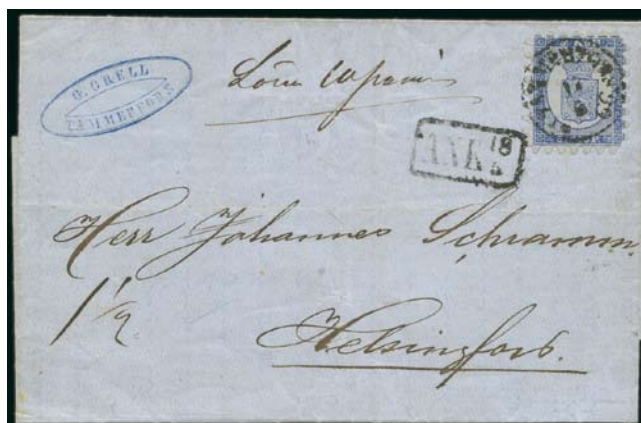 O. GRELL
TAMMERFORS
ANK 18
Herr Johannes Schramm.
1 1/2
Helsingfors.